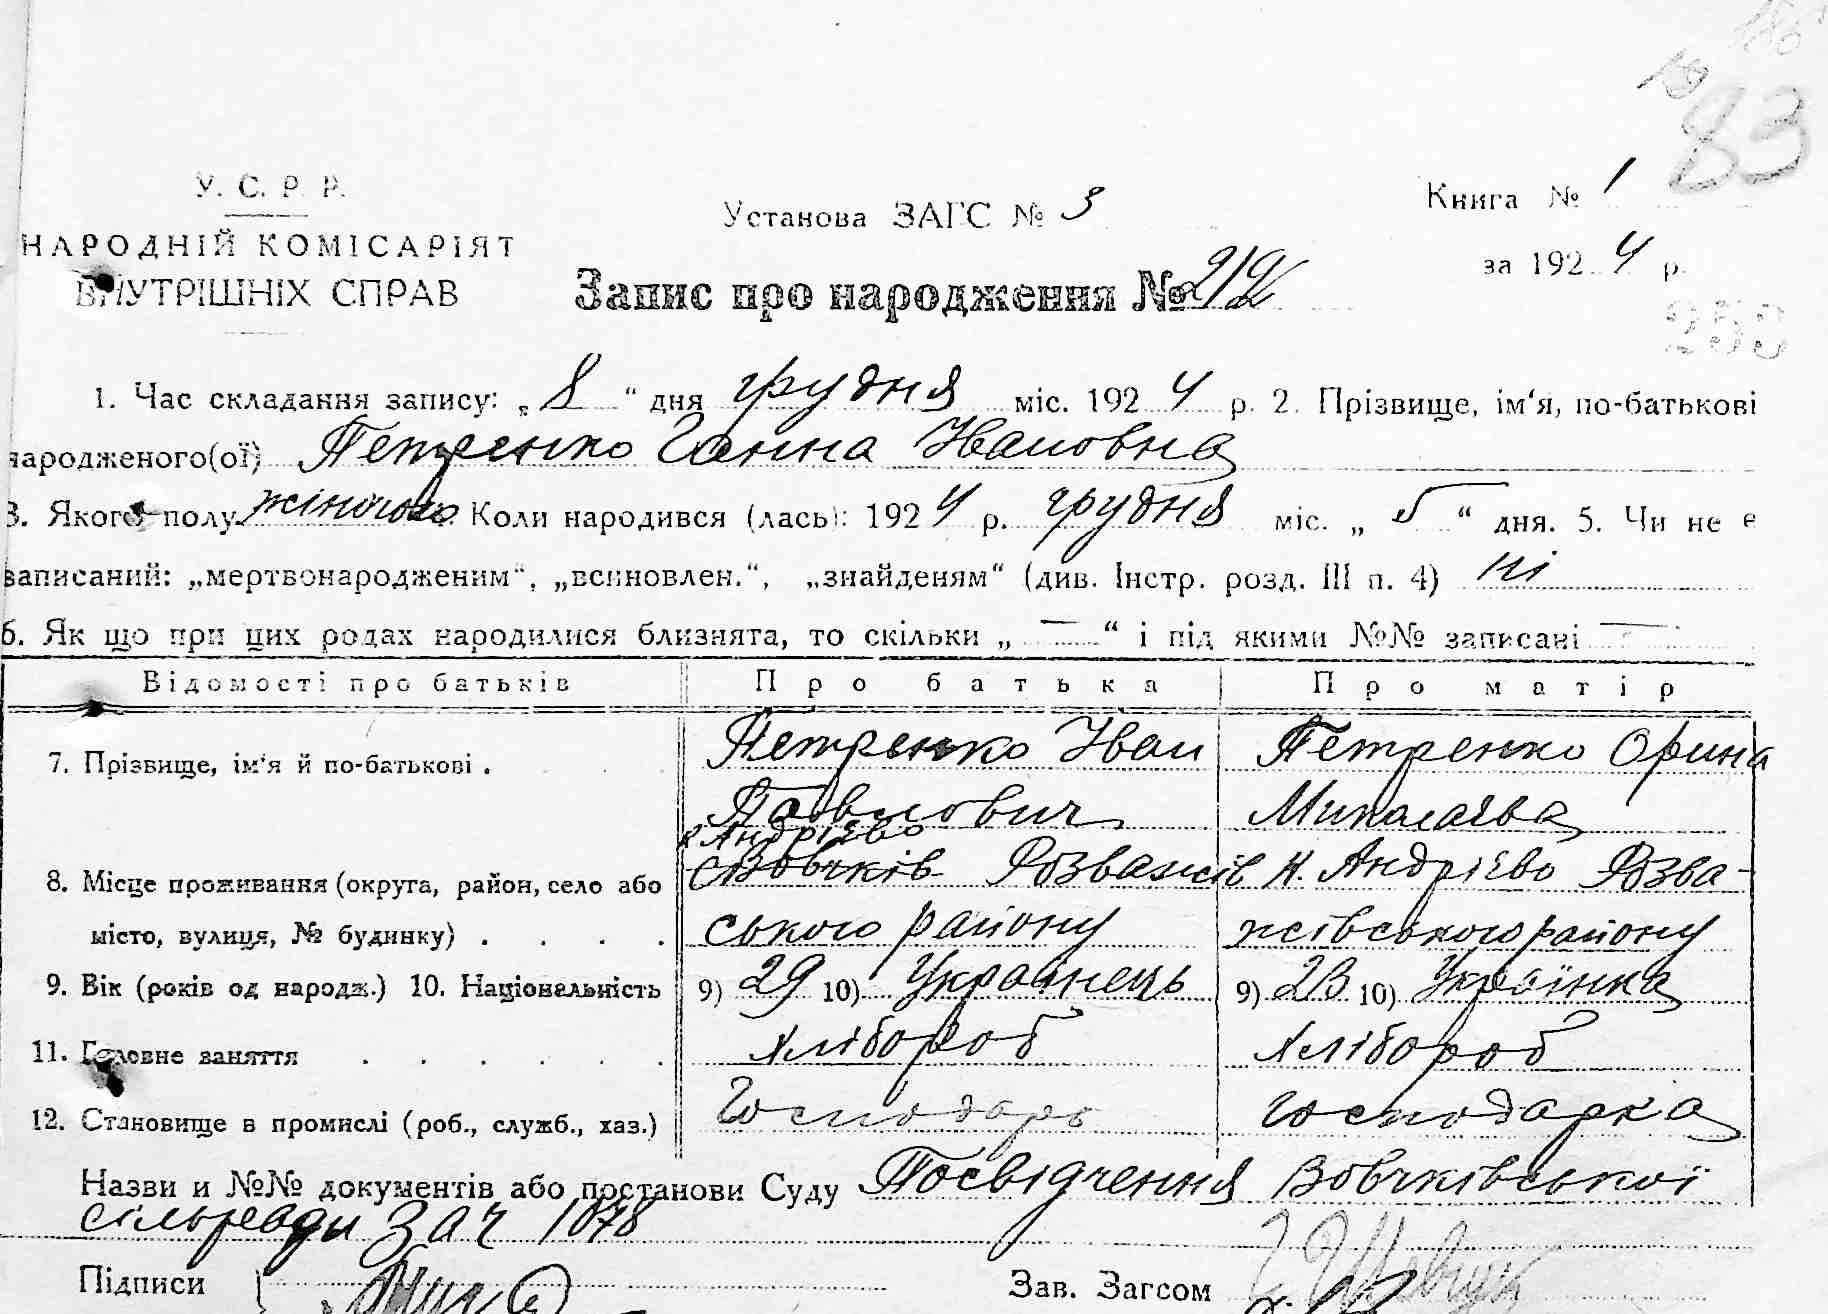 83
У. С. Р. Р.
Книга № 1
Установа ЗАГС № 3
НАРОДНІЙ КОМІСАРІЯТ
за 1924 р.
ВНУТРІШНІХ СПРАВ
Запис про народження № 212
1. Час складання запису: „ 8 “ дня грудня міс. 1924 р. 2. Прізвище, ім‘я, по-батькові
народженого(ої) Петренко Ганна Івановна
3. Якого полу жіночого. Коли народився (лась): 1924 р. грудня міс. „ 5 “ дня. 5. Чи не є
записаний: „мертвонародженим“, „всиновлен.“, „знайденям“ (див. Інстр. розд. III п. 4) ні
6. Як що при цих родах народилися близнята, то скільки „ — “ і під якими №№ записані —
Відомості про батьків Про батька Про матір
7. Прізвище, ім‘я й по-батькові . Петренко Іван Петренко Орина
Павлович Миколаєва
х Андрієво
8. Місце проживання (округа, район, село або с Вовчків Розважів Н. Андрієво Розва-
місто, вулиця, № будинку) . . . . ського району жівського району
9. Вік (років од народж.) 10. Національність 9) 29 10) Українець 9) 23 10) Українка
11. Головне заняття . . . . . . Хлібороб Хлібороб
12. Становище в промислі (роб., служб., хаз.) Господарь господарка
Назви и №№ документів або постанови Суду Посвідчення Вовчківської
сільради За ч 1078
Підписи Зав. Загсом